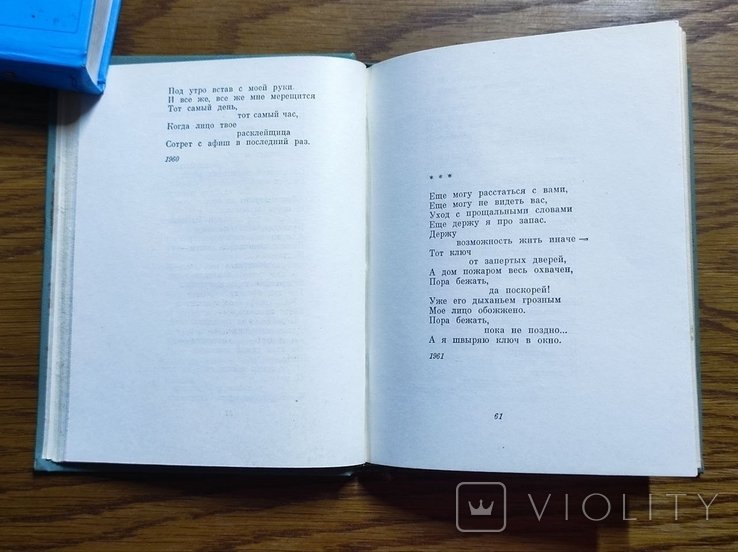 Под утро встав с моей руки.
И все же, все же мне мерещится
Тот самый день,
тот самый час,
Когда лицо твое
расклейщица
Сотрет с афиш в последний раз.
1960
* * *
Еще могу расстаться с вами,
Еще могу не видеть вас,
Уход с прощальными словами
Еще держу я про запас.
Держу
возможность жить иначе —
Тот ключ
от запертых дверей,
А дом пожаром весь охвачен,
Пора бежать,
да поскорей!
Уже его дыханьем грозным
Мое лицо обожжено.
Пора бежать,
пока не поздно...
А я швыряю ключ в окно.
1961
61
VIOLITY